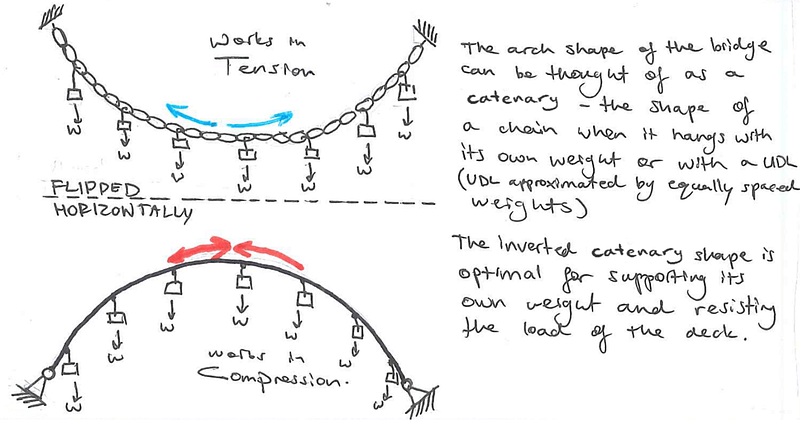 works in
Tension
w
w
w
w
w
w
w
FLIPPED
HORIZONTALLY
w
w
w
w
w
w
w
works in
Compression.
The arch shape of the bridge
can be thought of as a
catenary - the shape of
a chain when it hangs with
its own weight or with a UDL
(UDL approximated by equally spaced
weights)
The inverted catenary shape is
optimal for supporting its
own weight and resisting
the load of the deck.